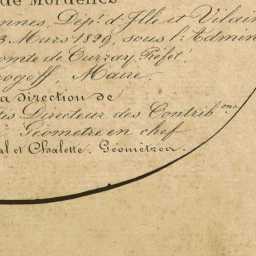 de Mordelles
ennes, Dépt. d'Ille et Vilain
3 Mars 1829, sous l'Admin
omte de Curzay, Préfet.
ogoff, Maire.
a direction de
tes Directeur des Contrib.ons
Géomètre en chef
al et Chalette, Géomètres.